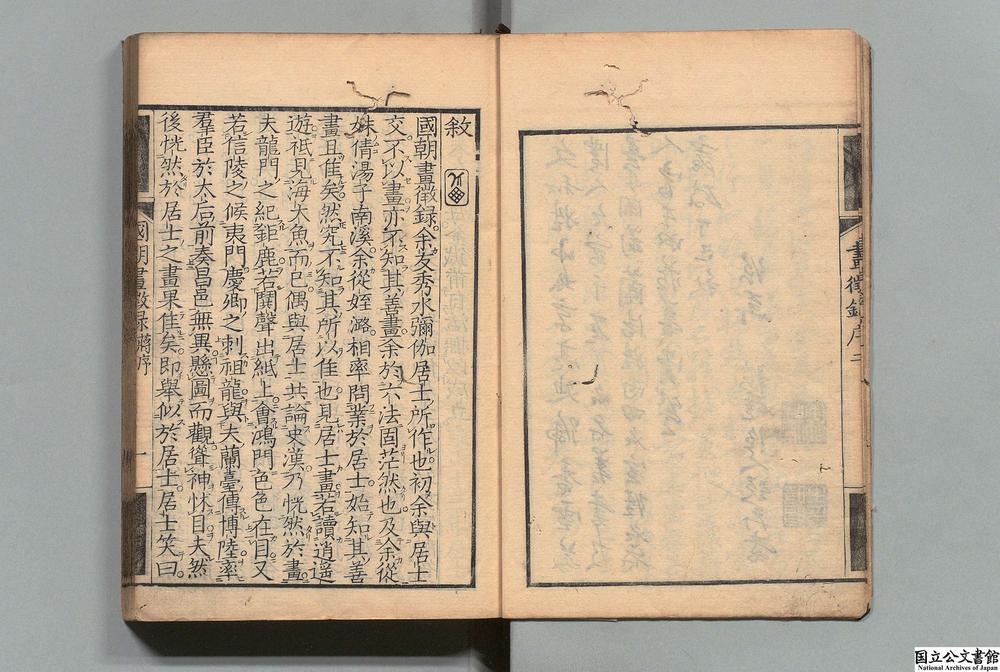 畫徵錄序 二
敘
國朝畫徵錄。余友秀水彌伽居士所作也。初余與居士
交。不以畫。亦不知其善畫。余於六法固茫然也。及余從
妹倩湯子南溪。余從姪潞。相率問業於居士。始知其善
畫且佳矣。然究不知其所以佳也。見居士畫。若讀逍遥
遊。祇見海大魚而已。偶與居士共論史漢。乃恍然於畫。
夫龍門之紀鉅鹿。若鬬聲出紙上。會鴻門。色色在目。又
若信陵之候夷門。慶卿之刺祖龍。與夫蘭臺傳博陸。率
羣臣於太后前奏昌邑。無異懸圖而觀。聳神怵目。夫然
後恍然於居士之畫果佳矣。即舉似於居士。居士笑曰。
國朝畫徵録 蔣序 一
国立公文書館
National Archives of Japan